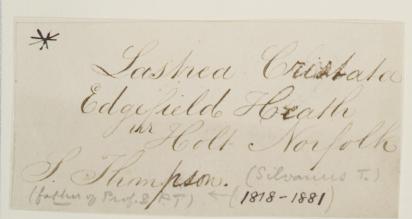 Lastrea Cristata
Edgefield Heath
nr Holt Norfolk
S. Thompson. (Silvanus T.)
(father of Prof. S. P. T.) ← (1818-1881)